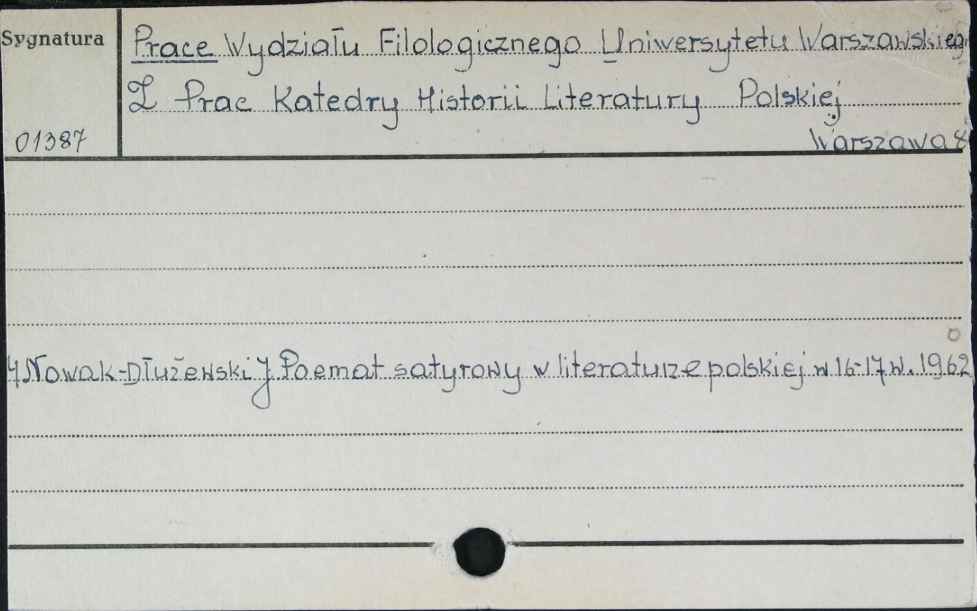 Sygnatura
Prace Wydziału Filologicznego Uniwersytetu Warszawskiego
Z Prac Katedry Historii Literatury Polskiej
01387
Warszawa 8°
4 Nowak-Dłużewski J. Poemat satyrowy w literaturze polskiej w 16-17 w. 1962